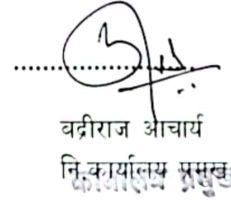 बद्रीराज आचार्य
नि.कार्यालय प्रमुख
कार्यालय प्रमुख